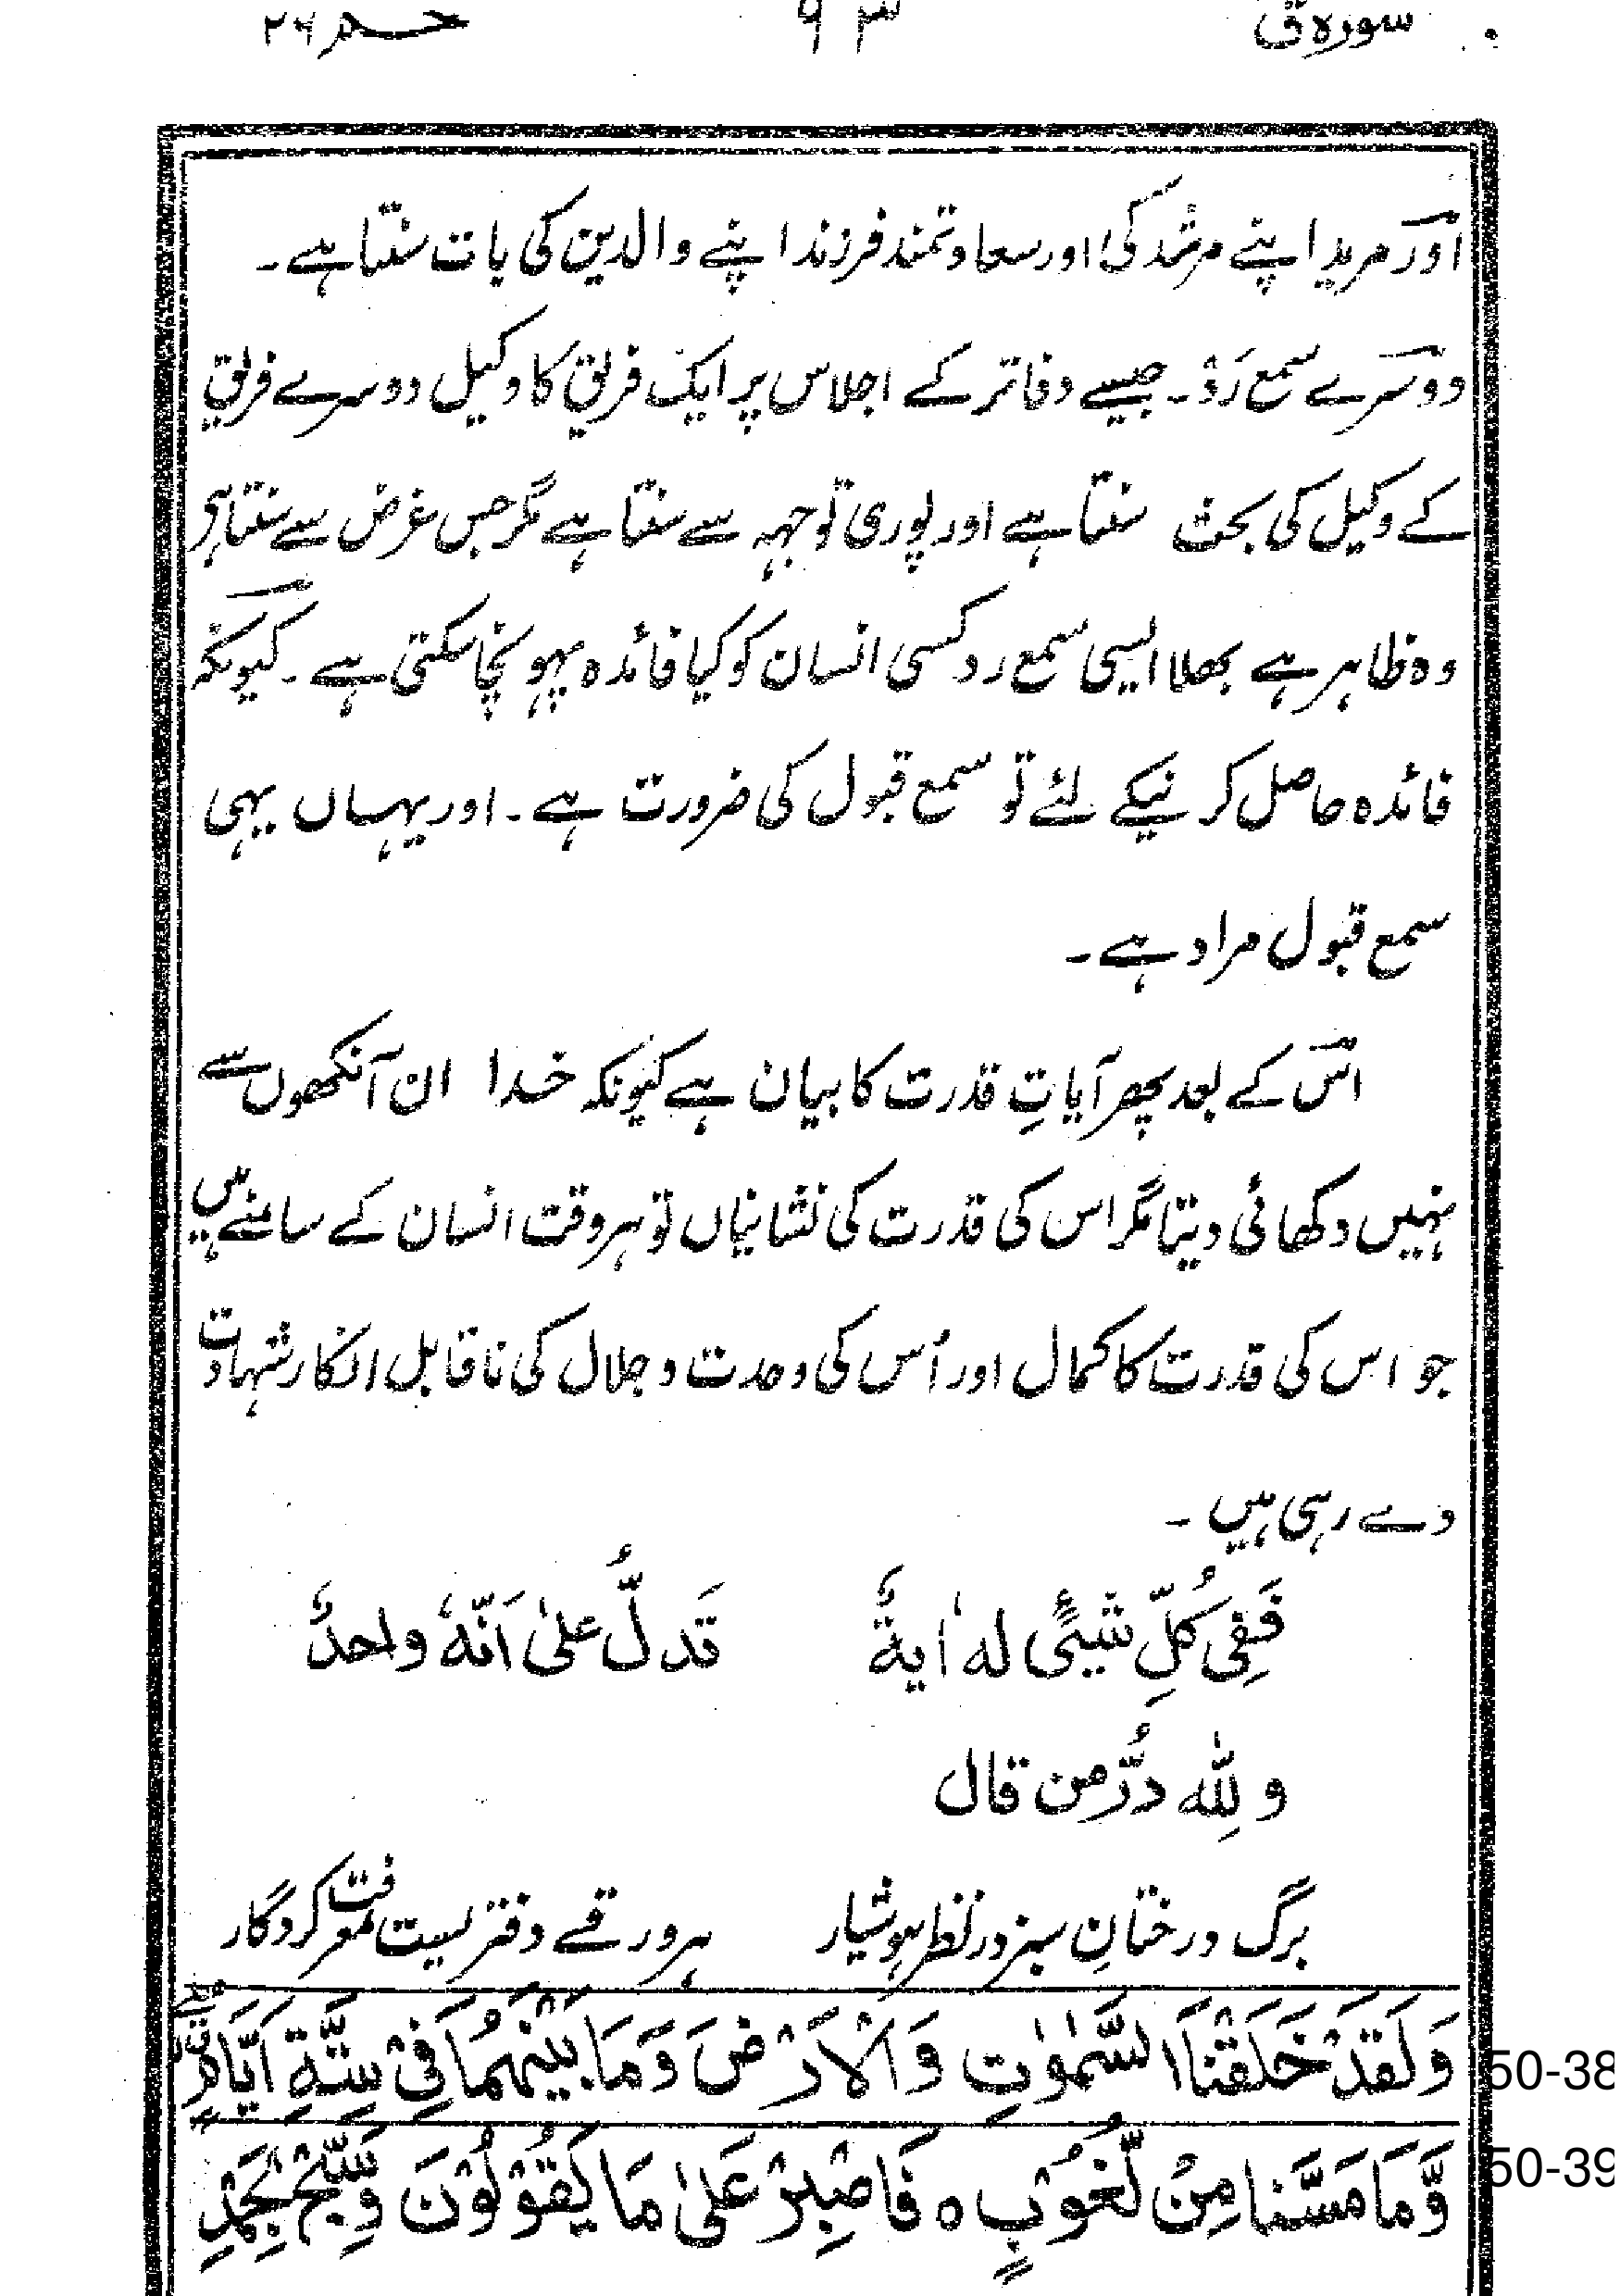 سورہ ق ۹۳ حٰم ۲۶
اور مرید اپنے مرشد کی اور سعادتمند فرزند اپنے والدین کی بات سنتا ہے۔
دوسرے سمع رَدّ۔ جیسے دفاتر کے اجلاس پر ایک فریق کا وکیل دوسرے فریق
کے وکیل کی بحث سنتا ہے اور پوری توجہہ سے سنتا ہے مگر جس غرض سے سنتا ہی
وہ ظاہر ہے بھلا ایسی سمع رد کسی انسان کو کیا فائدہ پہونچا سکتی ہے۔ کیونکہ
فائدہ حاصل کرنیکے لئے تو سمع قبول کی ضرورت ہے۔ اور یہاں یہی
سمع قبول مراد ہے۔
اس کے بعد پھر آیاتِ قدرت کا بیان ہے کیونکہ خدا ان آنکھوں سے
نہیں دکھائی دیتا مگر اس کی قدرت کی نشانیاں تو ہر وقت انسان کے سامنے ہیں
جو اس کی قدرت کا کمال اور اُس کی وحدت و جلال کی ناقابل انکار شہادت
دے رہی ہیں۔
فَفِی کُلِّ شَیْئٍ لہ اٰیةٌ قَد لَّ علیٰ اَنَّهٗ واحدٌ
و لِلّٰه دُرُّ من قال
برگ درختانِ سبز در نظر ہوشیار ہر ورقے دفتریست معرفت کردگار
وَلَقَدْ خَلَقْنَا السَّمٰوٰتِ وَالْاَرْضَ وَمَا بَيْنَهُمَا فِيْ سِتَّةِ اَيَّامٍ 50-38
وَّمَا مَسَّنَا مِنْ لُّغُوْبٍ ہ فَاصْبِرْ عَلٰى مَا يَقُوْلُوْنَ وَسَبِّحْ بِحَمْدِ 50-39